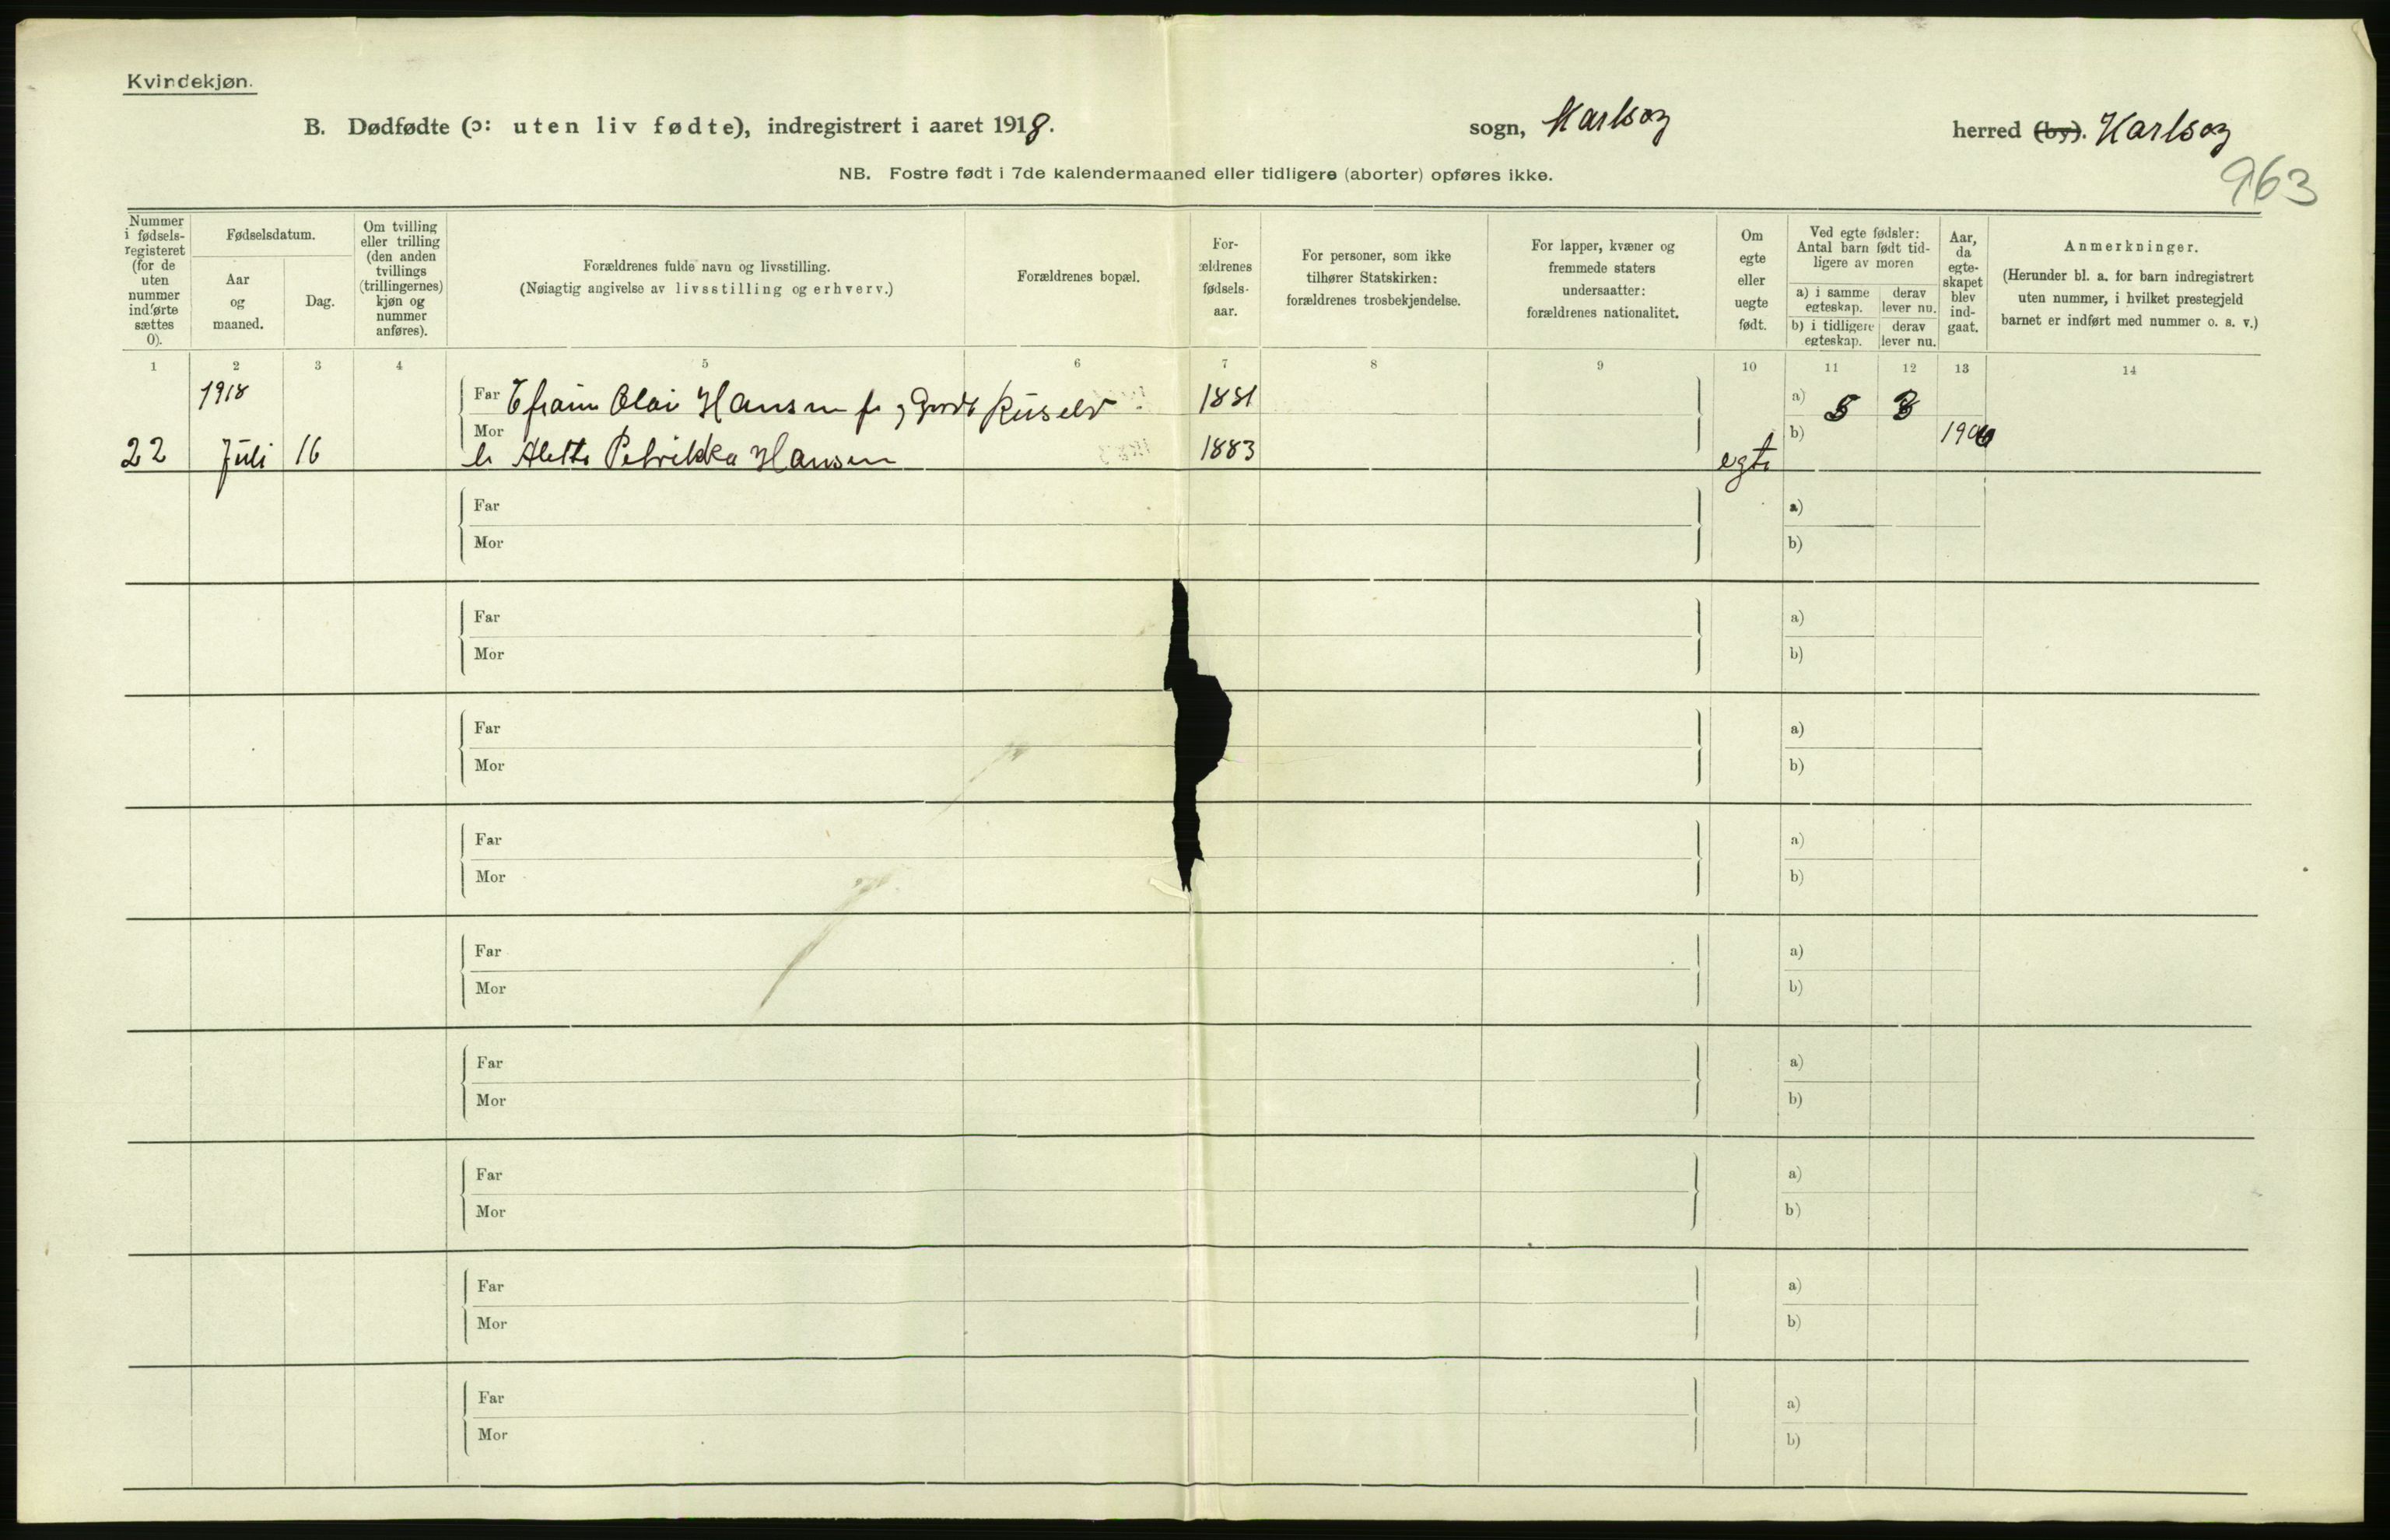 Kvindekjøn.
B. Dødfødte (ɔ: uten liv fødte), indregistrert i aaret 1918. sogn, Karlsøy herred (by). Karlsøy
NB. Fostre født i 7de kalendermaaned eller tidligere (aborter) opføres ikke.
963
Nummer
i fødsels-
registeret
(for de
uten
nummer
indførte
sættes
0).
Fødselsdatum.
Aar
og
maaned.
Dag.
Om tvilling
eller trilling
(den anden
tvillings
(trillingernes)
kjøn og
nummer
anføres).
Forældrenes fulde navn og livsstilling.
(Nøiagtig angivelse av livsstilling og erhverv.)
Forældrenes bopæl.
For-
ældrenes
fødsels-
aar.
For personer, som ikke
tilhører Statskirken:
forældrenes trosbekjendelse.
For lapper, kvæner og
fremmede staters
undersaatter:
forældrenes nationalitet.
Om
egte
eller
uegte
født.
Ved egte fødsler:
Antal barn født tid-
ligere av moren
a) i samme
egteskap.
derav
lever nu.
b) i tidligere
egteskap.
derav
lever nu.
Aar,
da
egte-
skapet
blev
ind-
gaat.
Anmerkninger.
(Herunder bl. a. for barn indregistrert
uten nummer, i hvilket prestegjeld
barnet er indført med nummer o. s. v.)
1 2 3 4 5 6 7 8 9 10 11 12 13 14
1918 Far Efraim Olai Hansen 1881 a) 5 3
22 Juli 16 Mor Alette Petrikka Hansen 1883 egte b)
Far a)
Mor b)
Far a)
Mor b)
Far a)
Mor b)
Far a)
Mor b)
Far a)
Mor b)
Far a)
Mor b)
Far a)
Mor b)
Far a)
Mor b)
Far a)
Mor b)